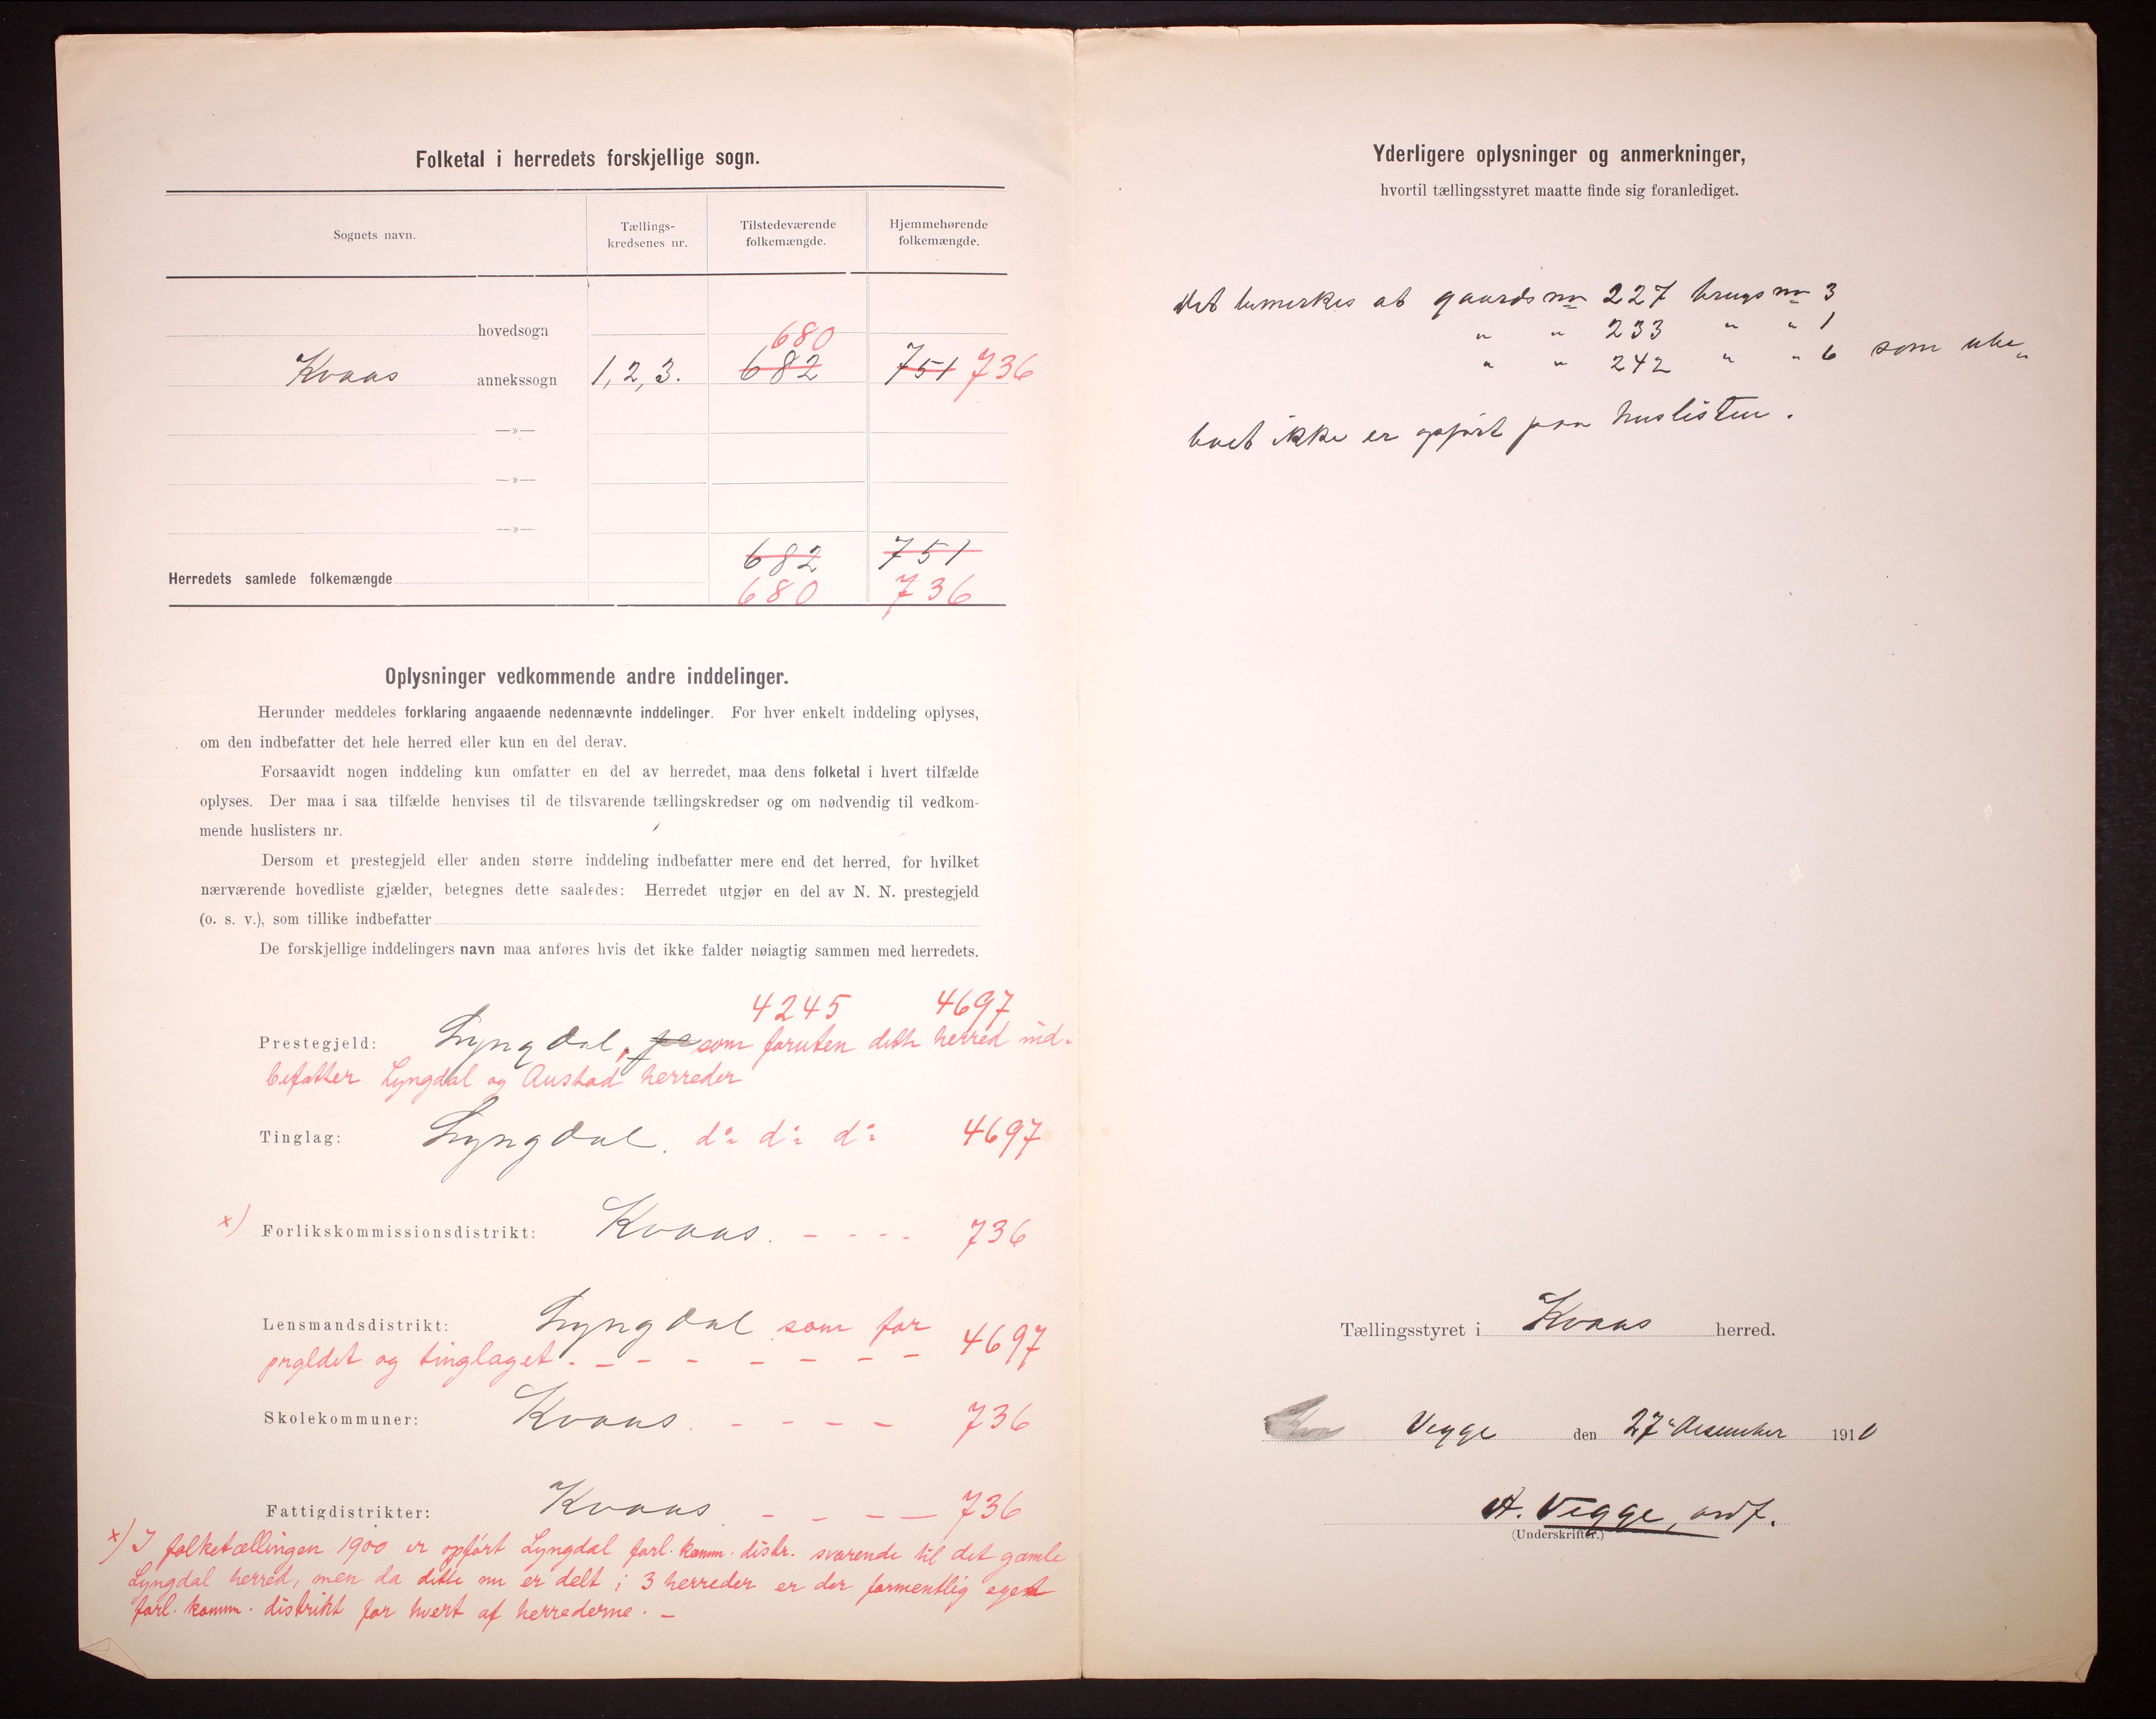 Folketal i herredets forskjellige sogn.
Sognets navn.
Tællings-
kredsenes nr.
Tilstedeværende
folkemængde.
Hjemmehørende
folkemængde.
hovedsogn
680
Kvaas annekssogn 1, 2, 3. 682 751 736
—»—
—»—
—»—
682 751
Herredets samlede folkemængde
680 736
Oplysninger vedkommende andre inddelinger.
Herunder meddeles forklaring angaaende nedennævnte inddelinger. For hver enkelt inddeling oplyses,
om den indbefatter det hele herred eller kun en del derav.
Forsaavidt nogen inddeling kun omfatter en del av herredet, maa dens folketal i hvert tilfælde
oplyses. Der maa i saa tilfælde henvises til de tilsvarende tællingskredser og om nødvendig til vedkom-
mende huslisters nr.
Dersom et prestegjeld eller anden større inddeling indbefatter mere end det herred, for hvilket
nærværende hovedliste gjælder, betegnes dette saaledes: Herredet utgjør en del av N. N. prestegjeld
(o. s. v.), som tillike indbefatter
De forskjellige inddelingers navn maa anføres hvis det ikke falder nøiagtig sammen med herredets.
4245 4697
Prestegjeld: Lyngdal, som foruten dette herred ind-
befatter Lyngdal og Austad herreder
Tinglag: Lyngdal. do do do 4697
x) Forlikskommissionsdistrikt: Kvaas. - - - - 736
Lensmandsdistrikt: Lyngdal som for
prgldet og tinglaget - - - - - - - - 4697
Skolekommuner: Kvaas. - - - - 736
Fattigdistrikter: Kvaas. - - - - 736
x) I folketællingen 1900 er opført Lyngdal forl. komm. distr. svarende til det gamle
Lyngdal herred, men da dette nu er delt i 3 herreder er der formentlig eget
forl. komm. distrikt for hvert af herrederne. —
Yderligere oplysninger og anmerkninger,
hvortil tællingsstyret maatte finde sig foranlediget.
Det bemerkes at gaards nr 227 brugs nr 3
" " 233 " " 1
" " 242 " " 6 som ube„
boet ikke er opført paa huslisten.
Tællingsstyret i Kvaas herred.
Vegge den 27 desember 1910
A. Vegge, ordf.
(Underskrifter.)